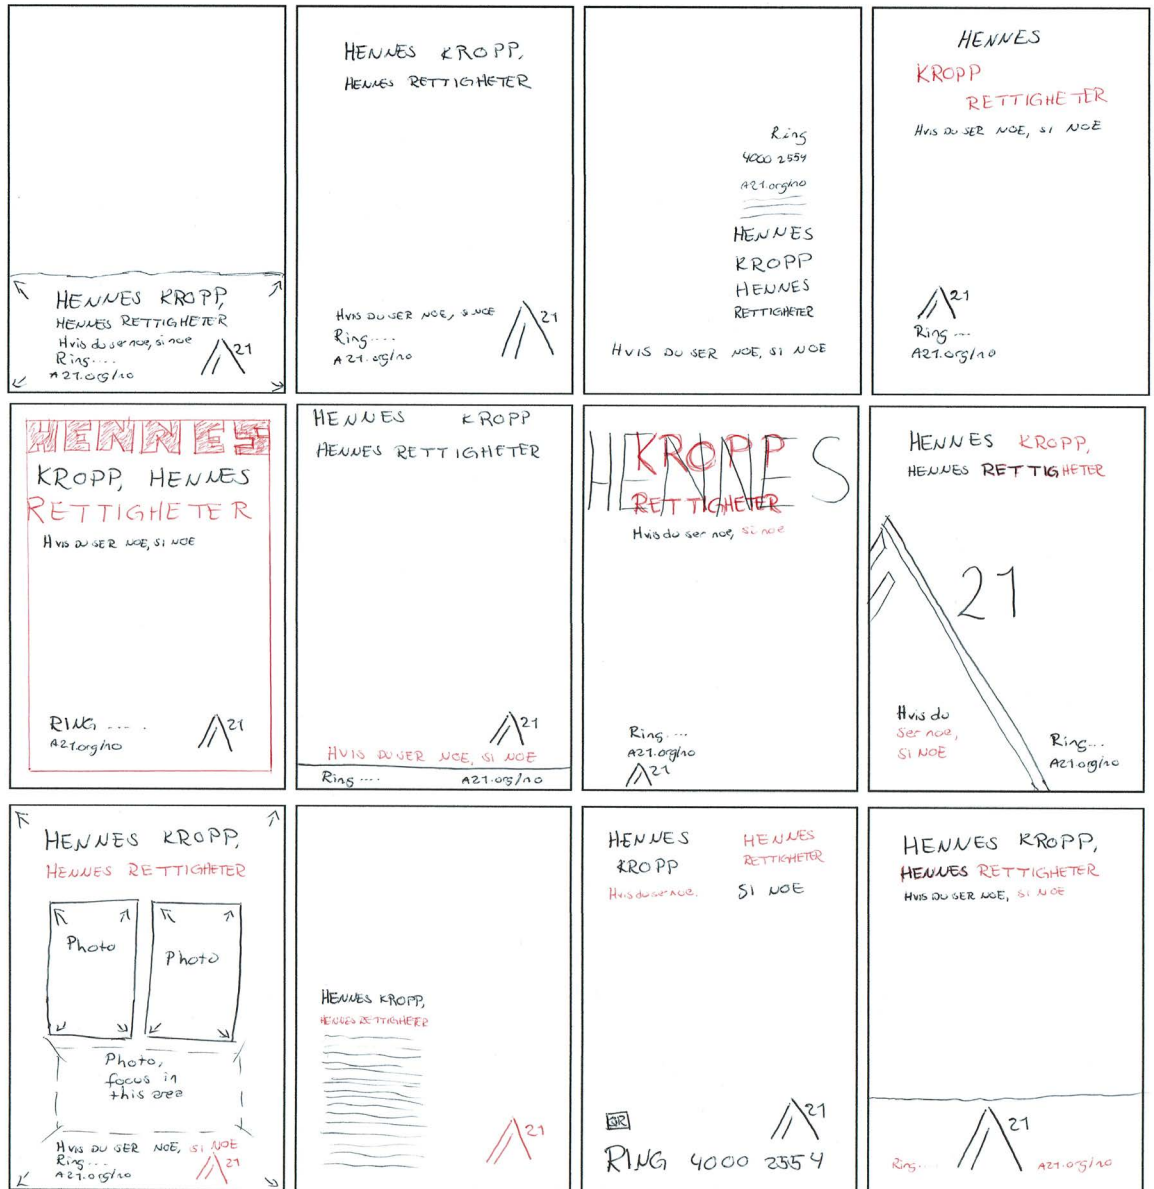 HENNES KROPP,
HENNES RETTIGHETER
Hvis du ser noe, si noe
Ring....
A21.org/no
21
HENNES KROPP,
HENNES RETTIGHETER
HVIS DU SER NOE, SI NOE
Ring....
A21.org/no
21
Ring
4000 2554
A21.org/no
HENNES
KROPP
HENNES
RETTIGHETER
HVIS DU SER NOE, SI NOE
HENNES
KROPP
RETTIGHETER
HVIS DU SER NOE, SI NOE
21
Ring....
A21.org/no
HENNES
KROPP, HENNES
RETTIGHETER
HVIS DU SER NOE, SI NOE
RING ....
A21.org/no
21
HENNES KROPP
HENNES RETTIGHETER
21
HVIS DU SER NOE, SI NOE
Ring .... A21.org/no
HENNES
KROPP
RETTIGHETER
Hvis du ser noe, si noe
Ring....
A21.org/no
21
HENNES KROPP,
HENNES RETTIGHETER
21
Hvis du
ser noe,
SI NOE
Ring...
A21.org/no
HENNES KROPP,
HENNES RETTIGHETER
Photo
Photo
Photo,
focus in
this area
HVIS DU SER NOE, SI NOE
Ring....
A21.org/no
21
HENNES KROPP,
HENNES RETTIGHETER
21
HENNES HENNES
KROPP RETTIGHETER
Hvis du ser noe, SI NOE
QR
21
RING 4000 2554
HENNES KROPP,
HENNES RETTIGHETER
HVIS DU SER NOE, SI NOE
21
Ring.... A21.org/no